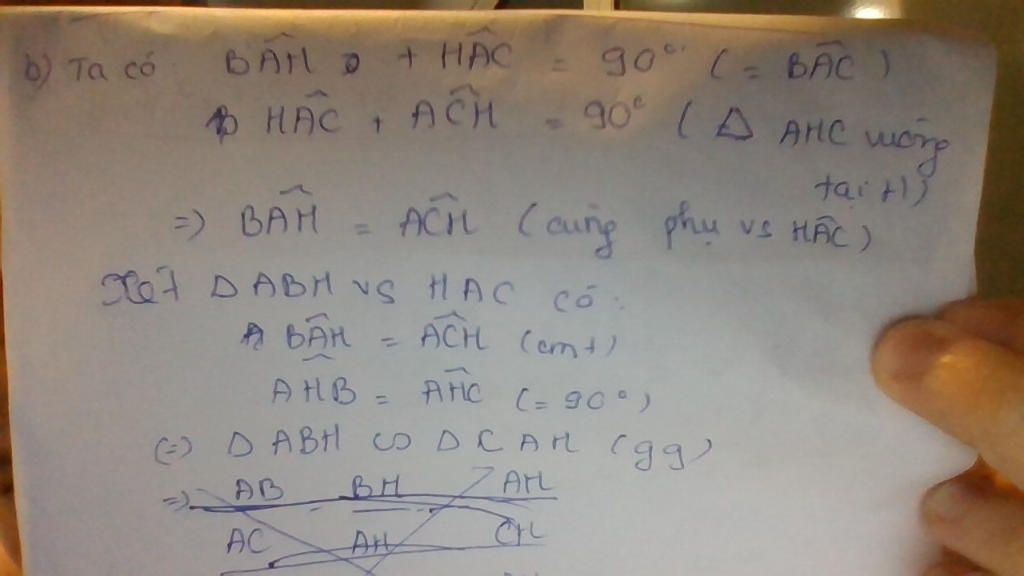 b) Ta có BÂH + HÂC = 90° (= BÂC)
HÂC + AĈH = 90° (Δ AHC vuông
tại H)
=> BÂH = AĈH (cùng phụ vs HÂC)
Xét Δ ABH vs HAC có:
BÂH = AĈH (cmt)
AĤB = AĤC (= 90°)
(=) Δ ABH ∽ Δ CAH (gg)
=> AB BH AH
AC AH CH